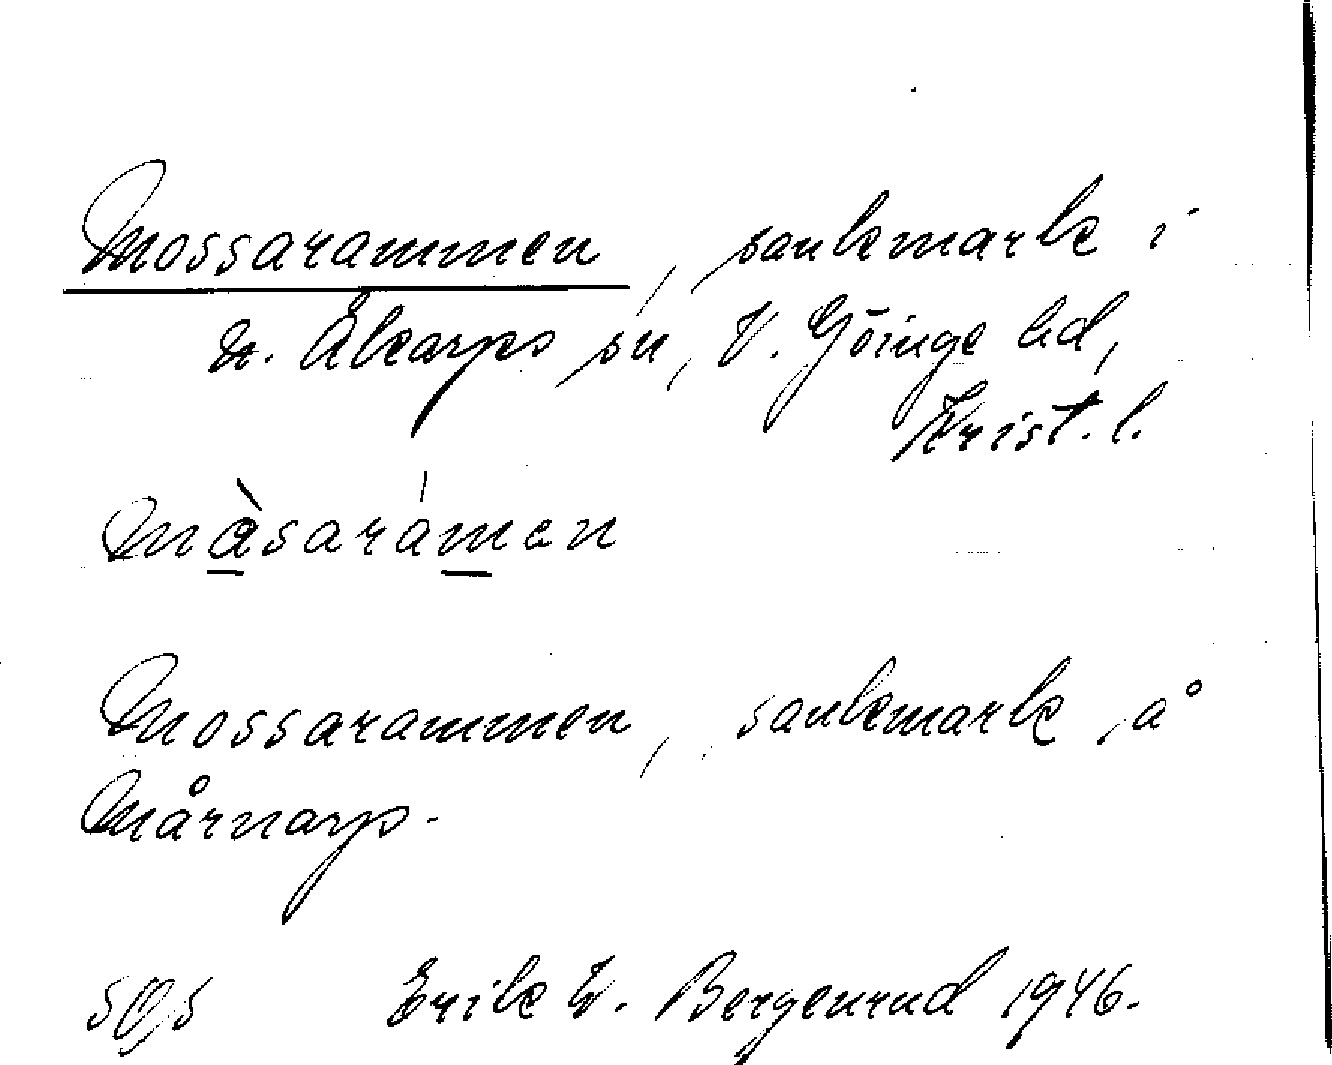 Mossarammen, sankmark i
N. Åkarps sn, V. Göinge hd,
Krist. l.
màsarámen
Mossarammen, sankmark å
Mårnarp.
SOS Erik W. Bergenrud 1946.